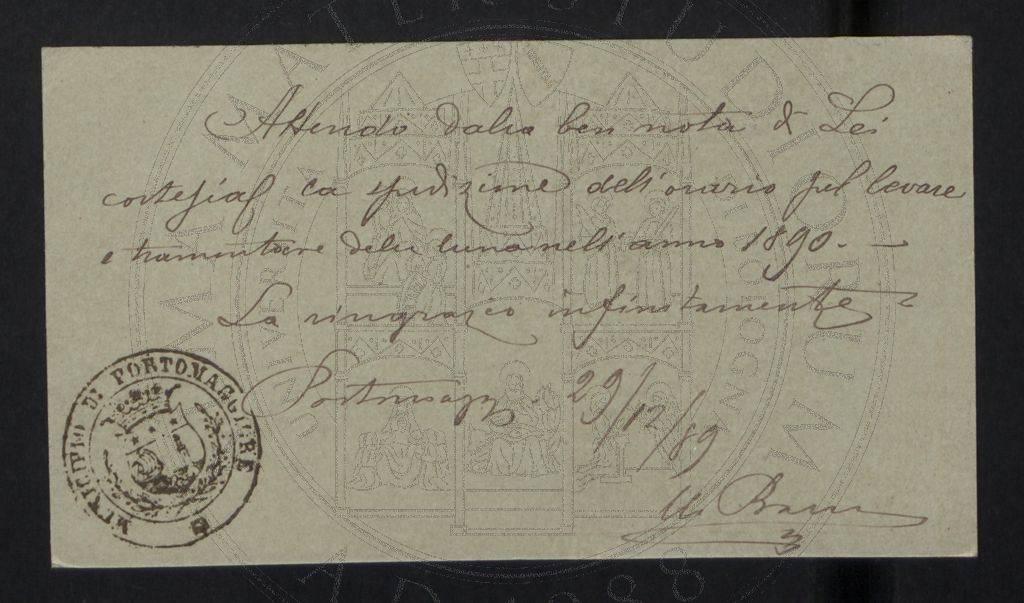 Attendo dalla ben nota di Lei
cortesia la spedizione dell'orario pel levare
e tramontare della luna nell'anno 1890. —
La ringrazio infinitamente
Portomagg. 29/12/89
MUNICIPIO DI PORTOMAGGIORE
ALMA MATER STUDIORUM